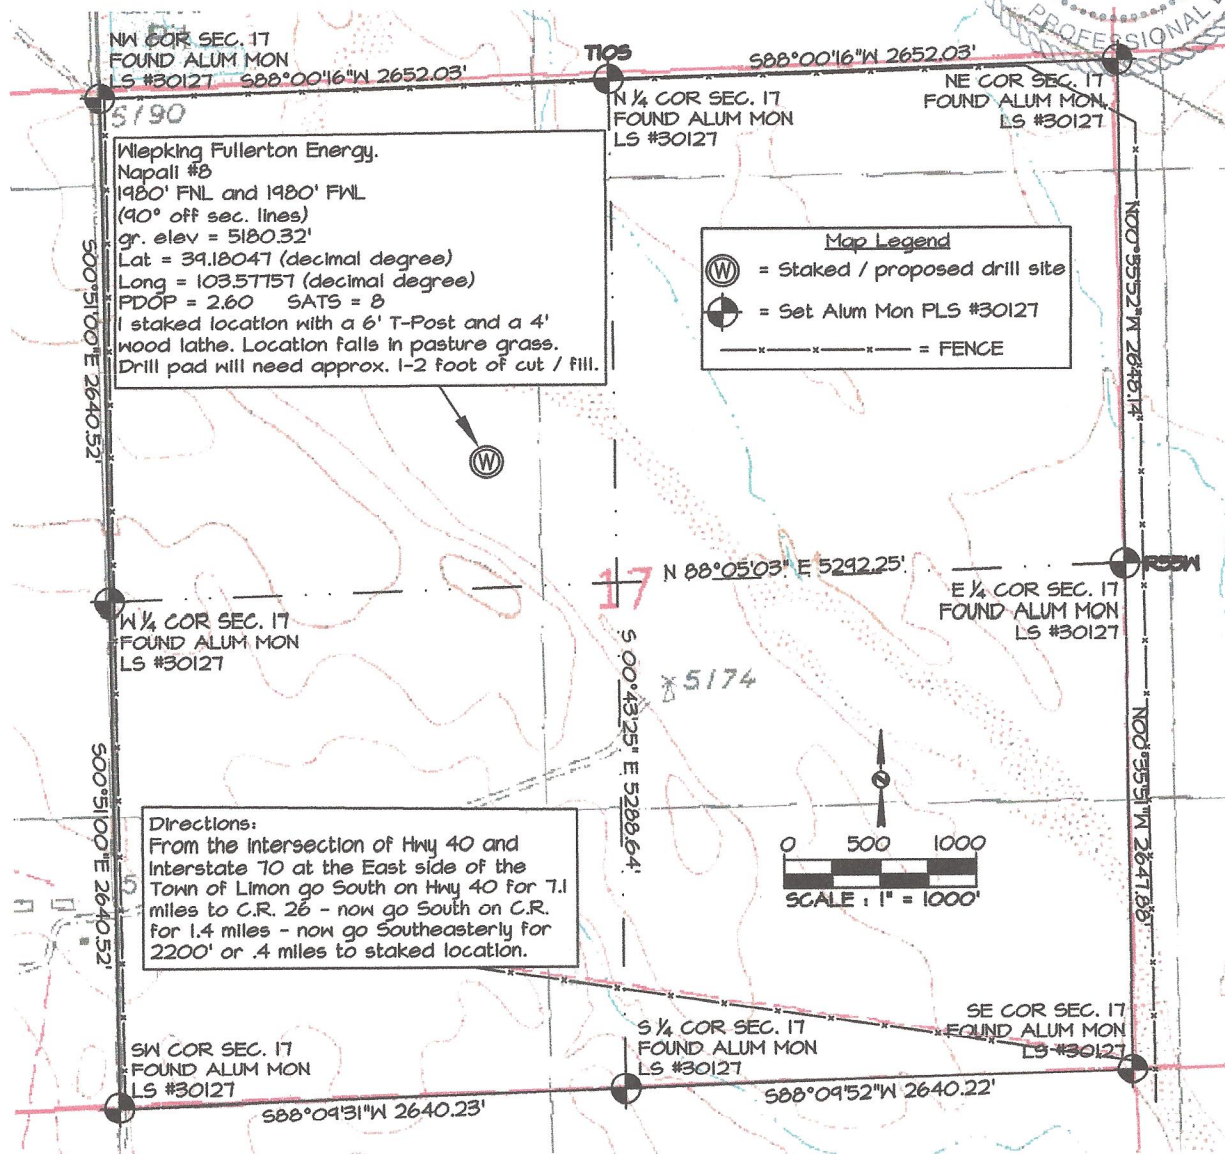 PROFESSIONAL
NW COR SEC. 17
FOUND ALUM MON
LS #30127
S88°00'16"W 2652.03'
T10S
S88°00'16"W 2652.03'
N ¼ COR SEC. 17
FOUND ALUM MON
LS #30127
NE COR SEC. 17
FOUND ALUM MON.
LS #30127
5190
Wiepking Fullerton Energy.
Napali #8
1980' FNL and 1980' FWL
(90° off sec. lines)
gr. elev = 5180.32'
Lat = 39.18047 (decimal degree)
Long = 103.57757 (decimal degree)
PDOP = 2.60 SATS = 8
I staked location with a 6' T-Post and a 4'
wood lathe. Location falls in pasture grass.
Drill pad will need approx. 1-2 foot of cut / fill.
Map Legend
W = Staked / proposed drill site
= Set Alum Mon PLS #30127
= FENCE
S00°51'00"E 2640.52'
N00°35'52"W 2648.14'
W
17
N 88°05'03" E 5292.25'
R55W
W ¼ COR SEC. 17
FOUND ALUM MON
LS #30127
E ¼ COR SEC. 17
FOUND ALUM MON
LS #30127
S 00°43'25" E 5288.64'
5174
S00°51'00"E 2640.52'
N00°35'51"W 2647.88'
N
0 500 1000
SCALE : 1" = 1000'
Directions:
From the intersection of Hwy 40 and
Interstate 70 at the East side of the
Town of Limon go South on Hwy 40 for 7.1
miles to C.R. 26 - now go South on C.R.
for 1.4 miles - now go Southeasterly for
2200' or .4 miles to staked location.
5
SW COR SEC. 17
FOUND ALUM MON
LS #30127
S ¼ COR SEC. 17
FOUND ALUM MON
LS #30127
SE COR SEC. 17
FOUND ALUM MON
LS #30127
S88°09'31"W 2640.23'
S88°09'52"W 2640.22'